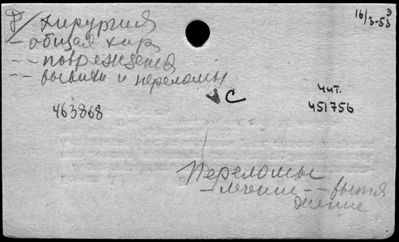 хирургия
- общая хир
-- повреждения
-- вывихи и переломы
16/3-58
С
Чит.
463868
451756
Переломы
- лечение -- вытя
жение